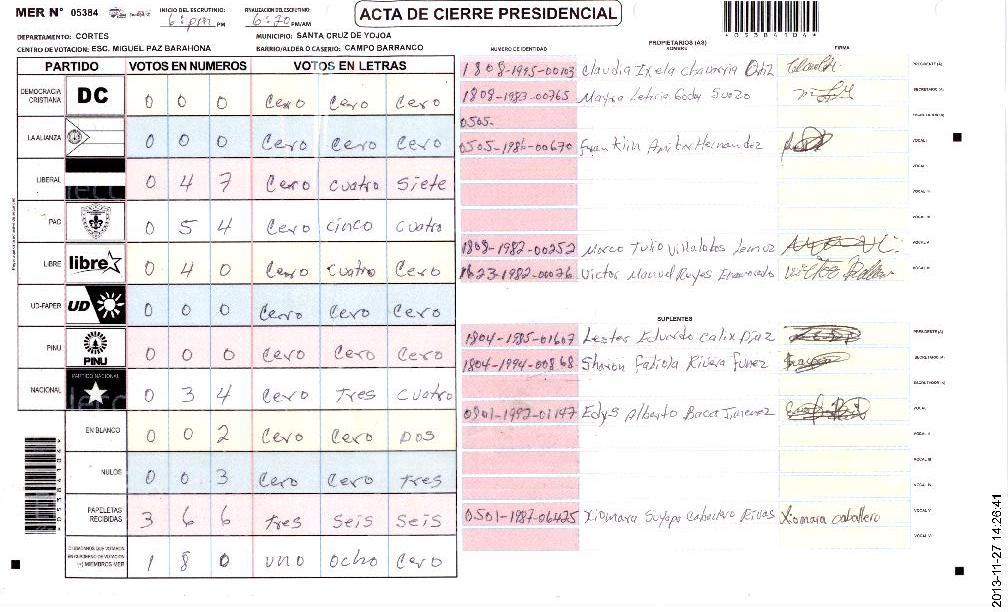 MER N° 05384
INICIO DEL ESCRUTINIO: 6: pm PM
FINALIZACION DEL ESCRUTINIO: 6:20 PM/AM
ACTA DE CIERRE PRESIDENCIAL
*05384104*
DEPARTAMENTO: CORTES
MUNICIPIO: SANTA CRUZ DE YOJOA
CENTRO DE VOTACION: ESC. MIGUEL PAZ BARAHONA
BARRIO/ALDEA O CASERIO: CAMPO BARRANCO
PARTIDO VOTOS EN NUMEROS VOTOS EN LETRAS
DEMOCRACIA CRISTIANA DC 0 0 0 Cero Cero Cero
LA ALIANZA 0 0 0 Cero Cero Cero
LIBERAL 0 4 7 Cero cuatro siete
PAC 0 5 4 Cero cinco cuatro
LIBRE libre 0 4 0 Cero cuatro Cero
UD-FAPER UD 0 0 0 Cerro Cero Cero
PINU PINU 0 0 0 Cero Cero Cero
NACIONAL PARTIDO NACIONAL 0 3 4 Cero Tres cuatro
EN BLANCO 0 0 2 Cero Cero Dos
NULOS 0 0 3 Cero Cero Tres
PAPELETAS RECIBIDAS 3 6 6 Tres Seis Seis
CIUDADANOS QUE VOTARON EN CUADERNO DE VOTACION (+) MIEMBROS MER 1 8 0 uno ocho Cero
PROPIETARIOS (AS)
NUMERO DE IDENTIDAD NOMBRE FIRMA
1808-1995-00103 Claudia Ixela Chavarria Ortiz PRESIDENTE (A)
1808-1983-00765 Mayra Leticia Godoy Suazo SECRETARIO (A)
0505- ESCRUTADOR (A)
0505-1986-00670 Franklin Amilcar Hernandez VOCAL I
VOCAL II
VOCAL III
VOCAL IV
1808-1982-00252 Marco Tulio Villalobos VOCAL V
1623-1982-00076 Victor Manuel Reyes Enamorado VOCAL VI
SUPLENTES
1804-1985-01607 Lester Eduardo Calix Diaz PRESIDENTE (A)
1804-1994-00868 Sharon Fabiola Rivera Funez SECRETARIO (A)
ESCRUTADOR (A)
0801-1992-01147 Edys Alberto Baca Jimenez VOCAL I
VOCAL II
VOCAL III
VOCAL IV
0501-1987-06425 Xiomara Suyapa Caballero Rivas Xiomara caballero VOCAL V
VOCAL VI
2013-11-27 14:26:41